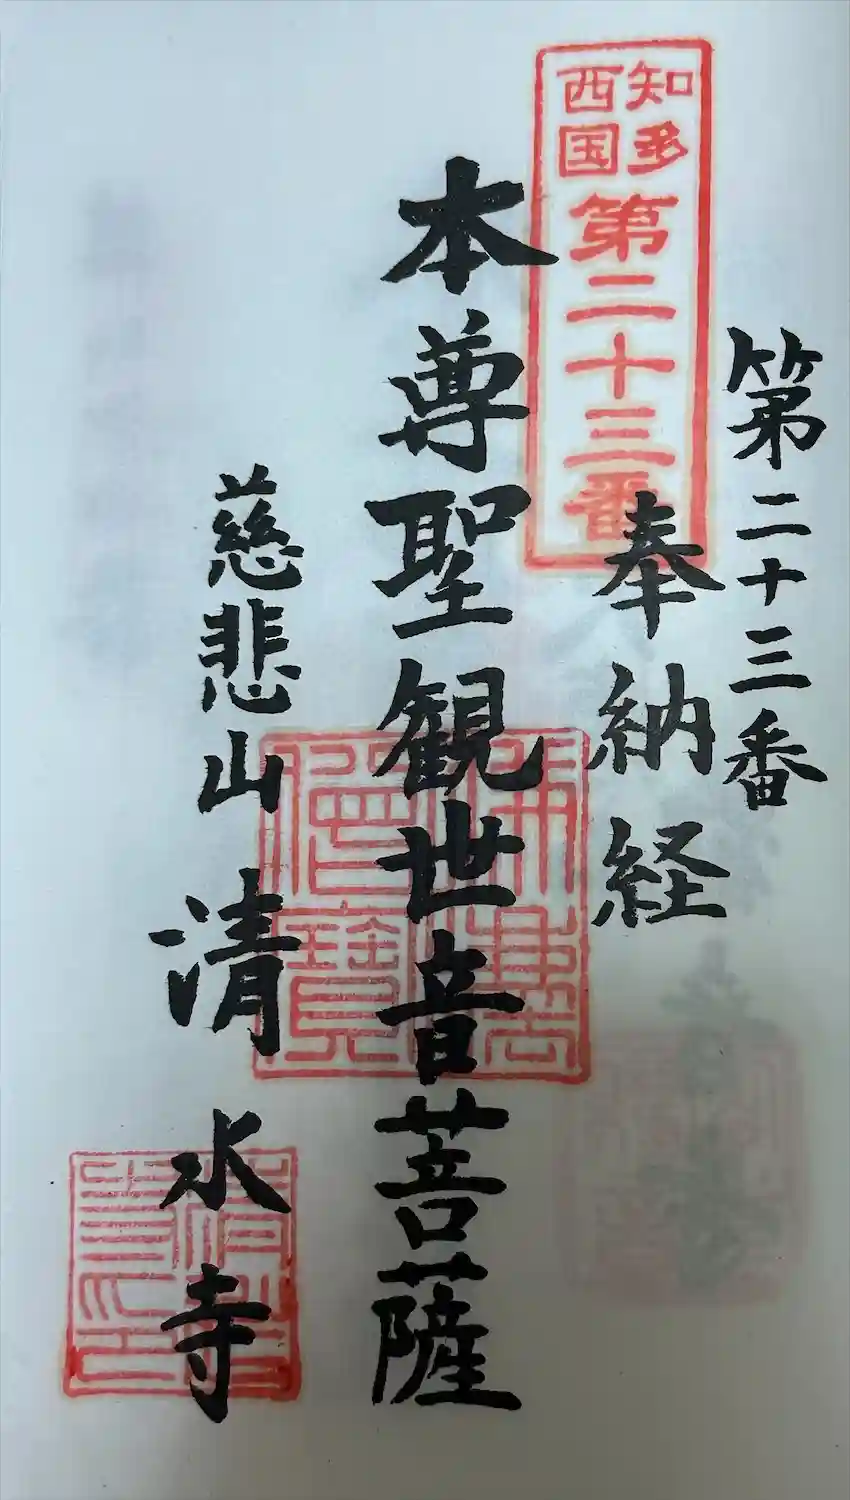 第二十三番
知多
西国
第二十三番
奉納経
本尊聖観世音菩薩
慈悲山
清水寺